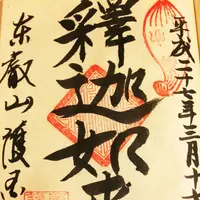 平成二十七年三月十
釋迦如来
東叡山護国